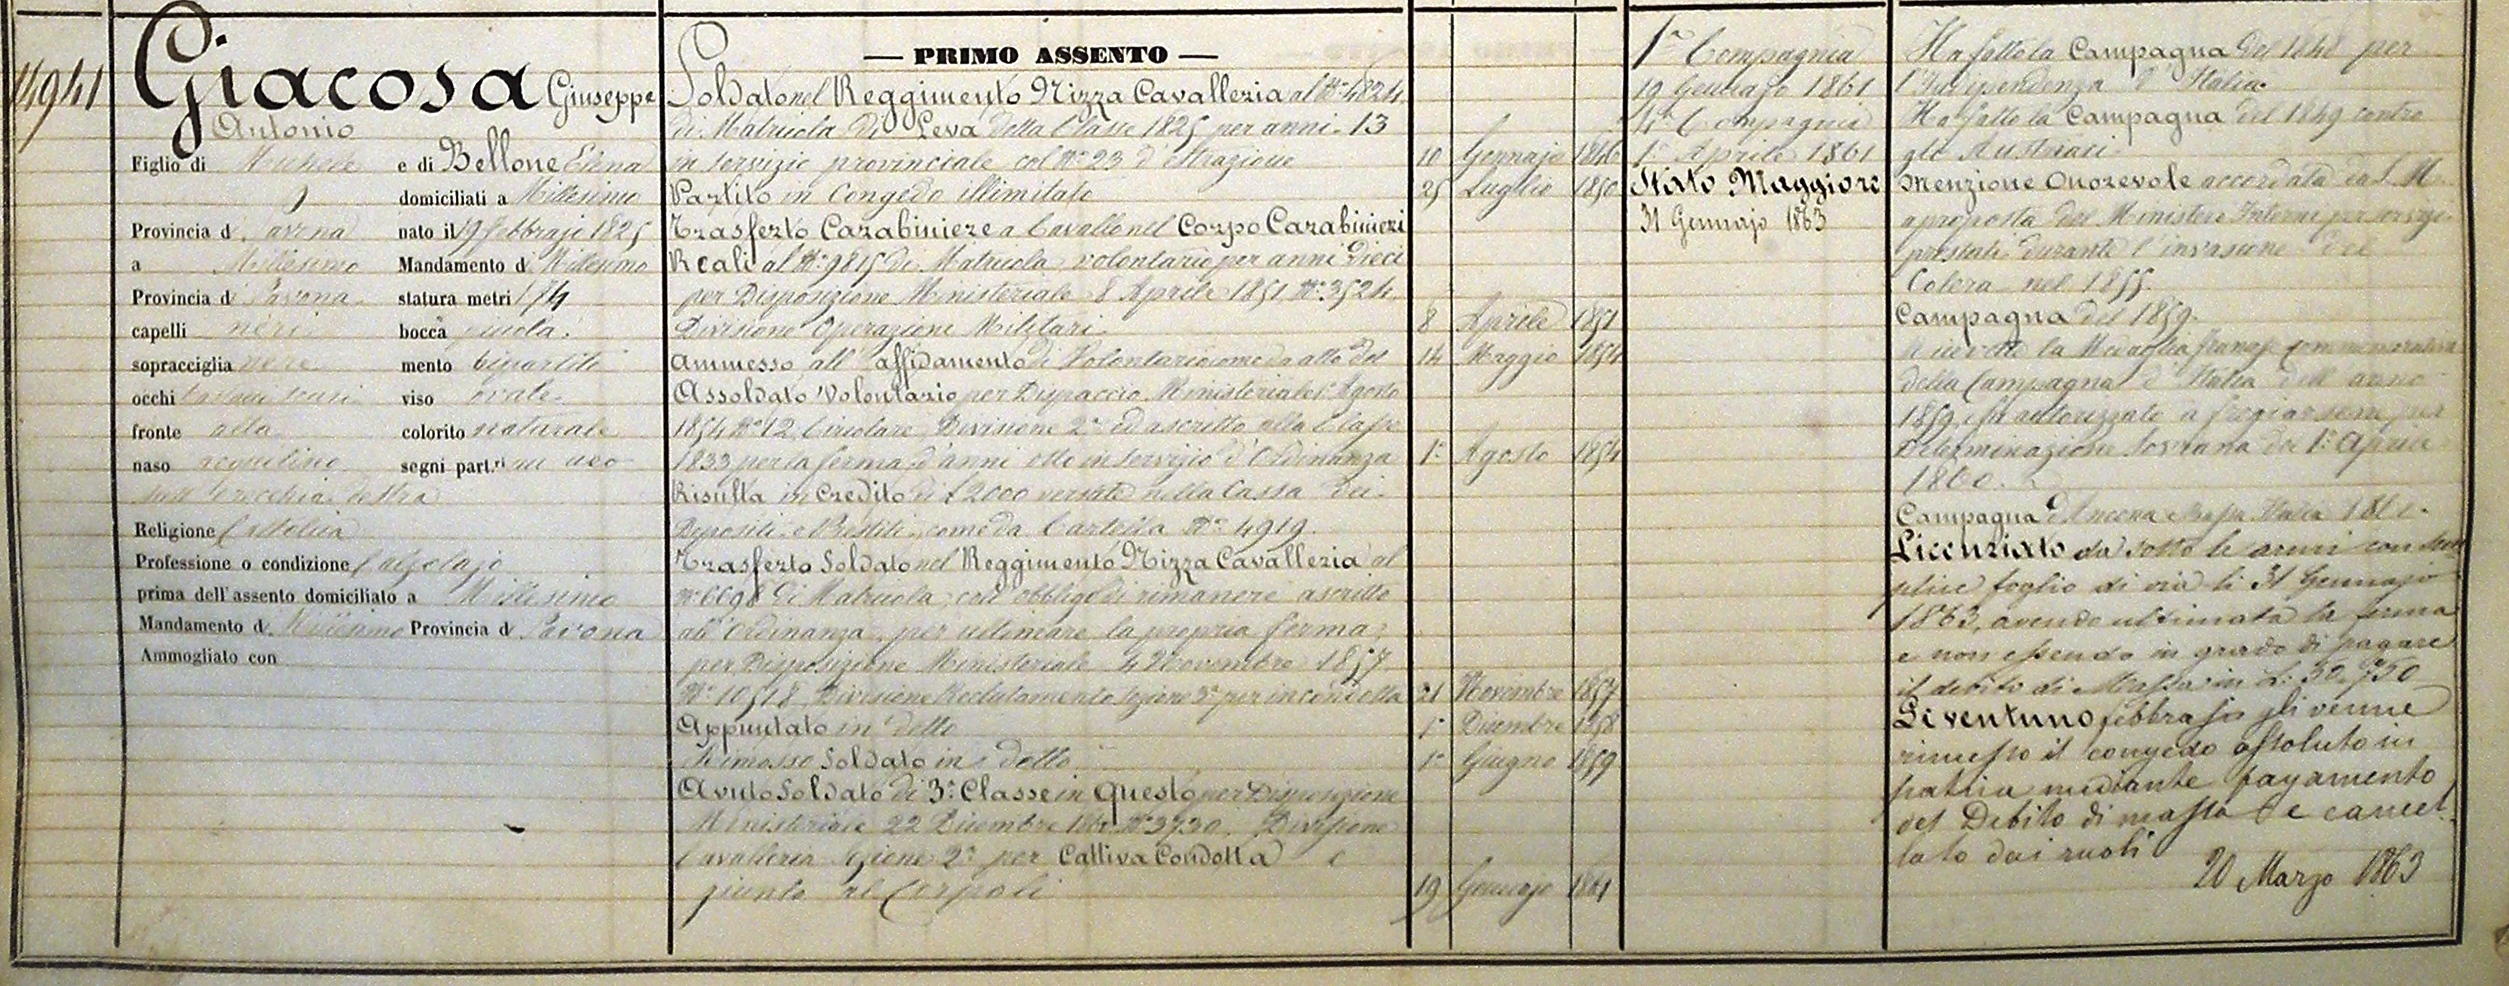 14941
Giacosa Giuseppe
Antonio
Figlio di Michele e di Bellone Elena
domiciliati a Millesimo
Provincia di Savona nato il 19 febbrajo 1825
a Millesimo Mandamento di Millesimo
Provincia di Savona statura metri 1,74
capelli neri bocca piccola
sopracciglia nere mento bipartito
occhi castani scuri viso ovale
fronte alta colorito naturale
naso acquilino segni part.ri un neo
sull'orecchia destra
Religione Cattolica
Professione o condizione Calzolajo
prima dell'assento domiciliato a Millesimo
Mandamento di Millesimo Provincia di Savona
Ammogliato con
— PRIMO ASSENTO —
Soldato nel Reggimento Nizza Cavalleria al N° 4824
di Matricola di Leva della Classe 1825 per anni 13
in servizio provinciale col N° 23 d'estrazione 10 Gennajo 1846
Partito in Congedo illimitato 25 Luglio 1850
Trasferto Carabiniere a Cavallo nel Corpo Carabinieri
Reali al N° 9815 di Matricola, volontario per anni dieci
per Disposizione Ministeriale 8 Aprile 1851 N° 3524
Divisione Operazione Militari 8 Aprile 1851
Ammesso all'affidamento di Volontario come da atto del 14 Maggio 1854
Assoldato Volontario per Dispaccio Ministeriale 1° Agosto
1854 N° 12, Circolare, Divisione 2ª ed ascritto alla Classe
1833 per la ferma d'anni otto in servizio d'Ordinanza 1° Agosto 1854
Risulta in Credito di £ 2000 versate nella Cassa dei
Depositi e Prestiti, come da Cartella N° 4919.
Trasferto Soldato nel Reggimento Nizza Cavalleria al
N° 6698 di Matricola, coll'obbligo di rimanere ascritto
all'Ordinanza, per ultimare la propria ferma,
per Disposizione Ministeriale 4 Novembre 1857
N° 10518, Divisione Reclutamento Sezione 3ª per incondotta 21 Novembre 1857
Appuntato in detto 1° Dicembre 1858
Rimosso Soldato in detto 1° Giugno 1859
Avuto Soldato di 3ª Classe in questo per Disposizione
Ministeriale 22 Dicembre 1860 N° 3730. Divisione
Cavalleria Sezione 2ª per Cattiva Condotta e
giunto al Corpo li 19 Gennajo 1861
1ª Compagnia
19 Gennajo 1861
4ª Compagnia
1° Aprile 1861
Stato Maggiore
31 Gennajo 1863
Ha fatto la Campagna del 1848 per
l'Indipendenza d'Italia.
Ha fatto la Campagna del 1849 contro
gli Austriaci.
Menzione Onorevole accordata da S. M.
a proposta del Ministero Interni per servizi
prestati durante l'invasione del
Colera nel 1855.
Campagna del 1859.
Ricevette la Medaglia francese commemorativa
della Campagna d'Italia dell'anno
1859, fu autorizzato a fregiarsene per
Determinazione Sovrana del 1° Aprile
1860.
Campagna d'Ancona e Bassa Italia
Licenziato da sotto le armi con sem
plice foglio di via li 31 Gennajo
1863, avendo ultimata la ferma
e non essendo in grado di pagare
il debito di Massa in L: 30.750
Li ventuno febbrajo gli venne
rimesso il congedo assoluto in
patria mediante pagamento
del Debito di massa e cancel
lato dai ruoli
20 Marzo 1863